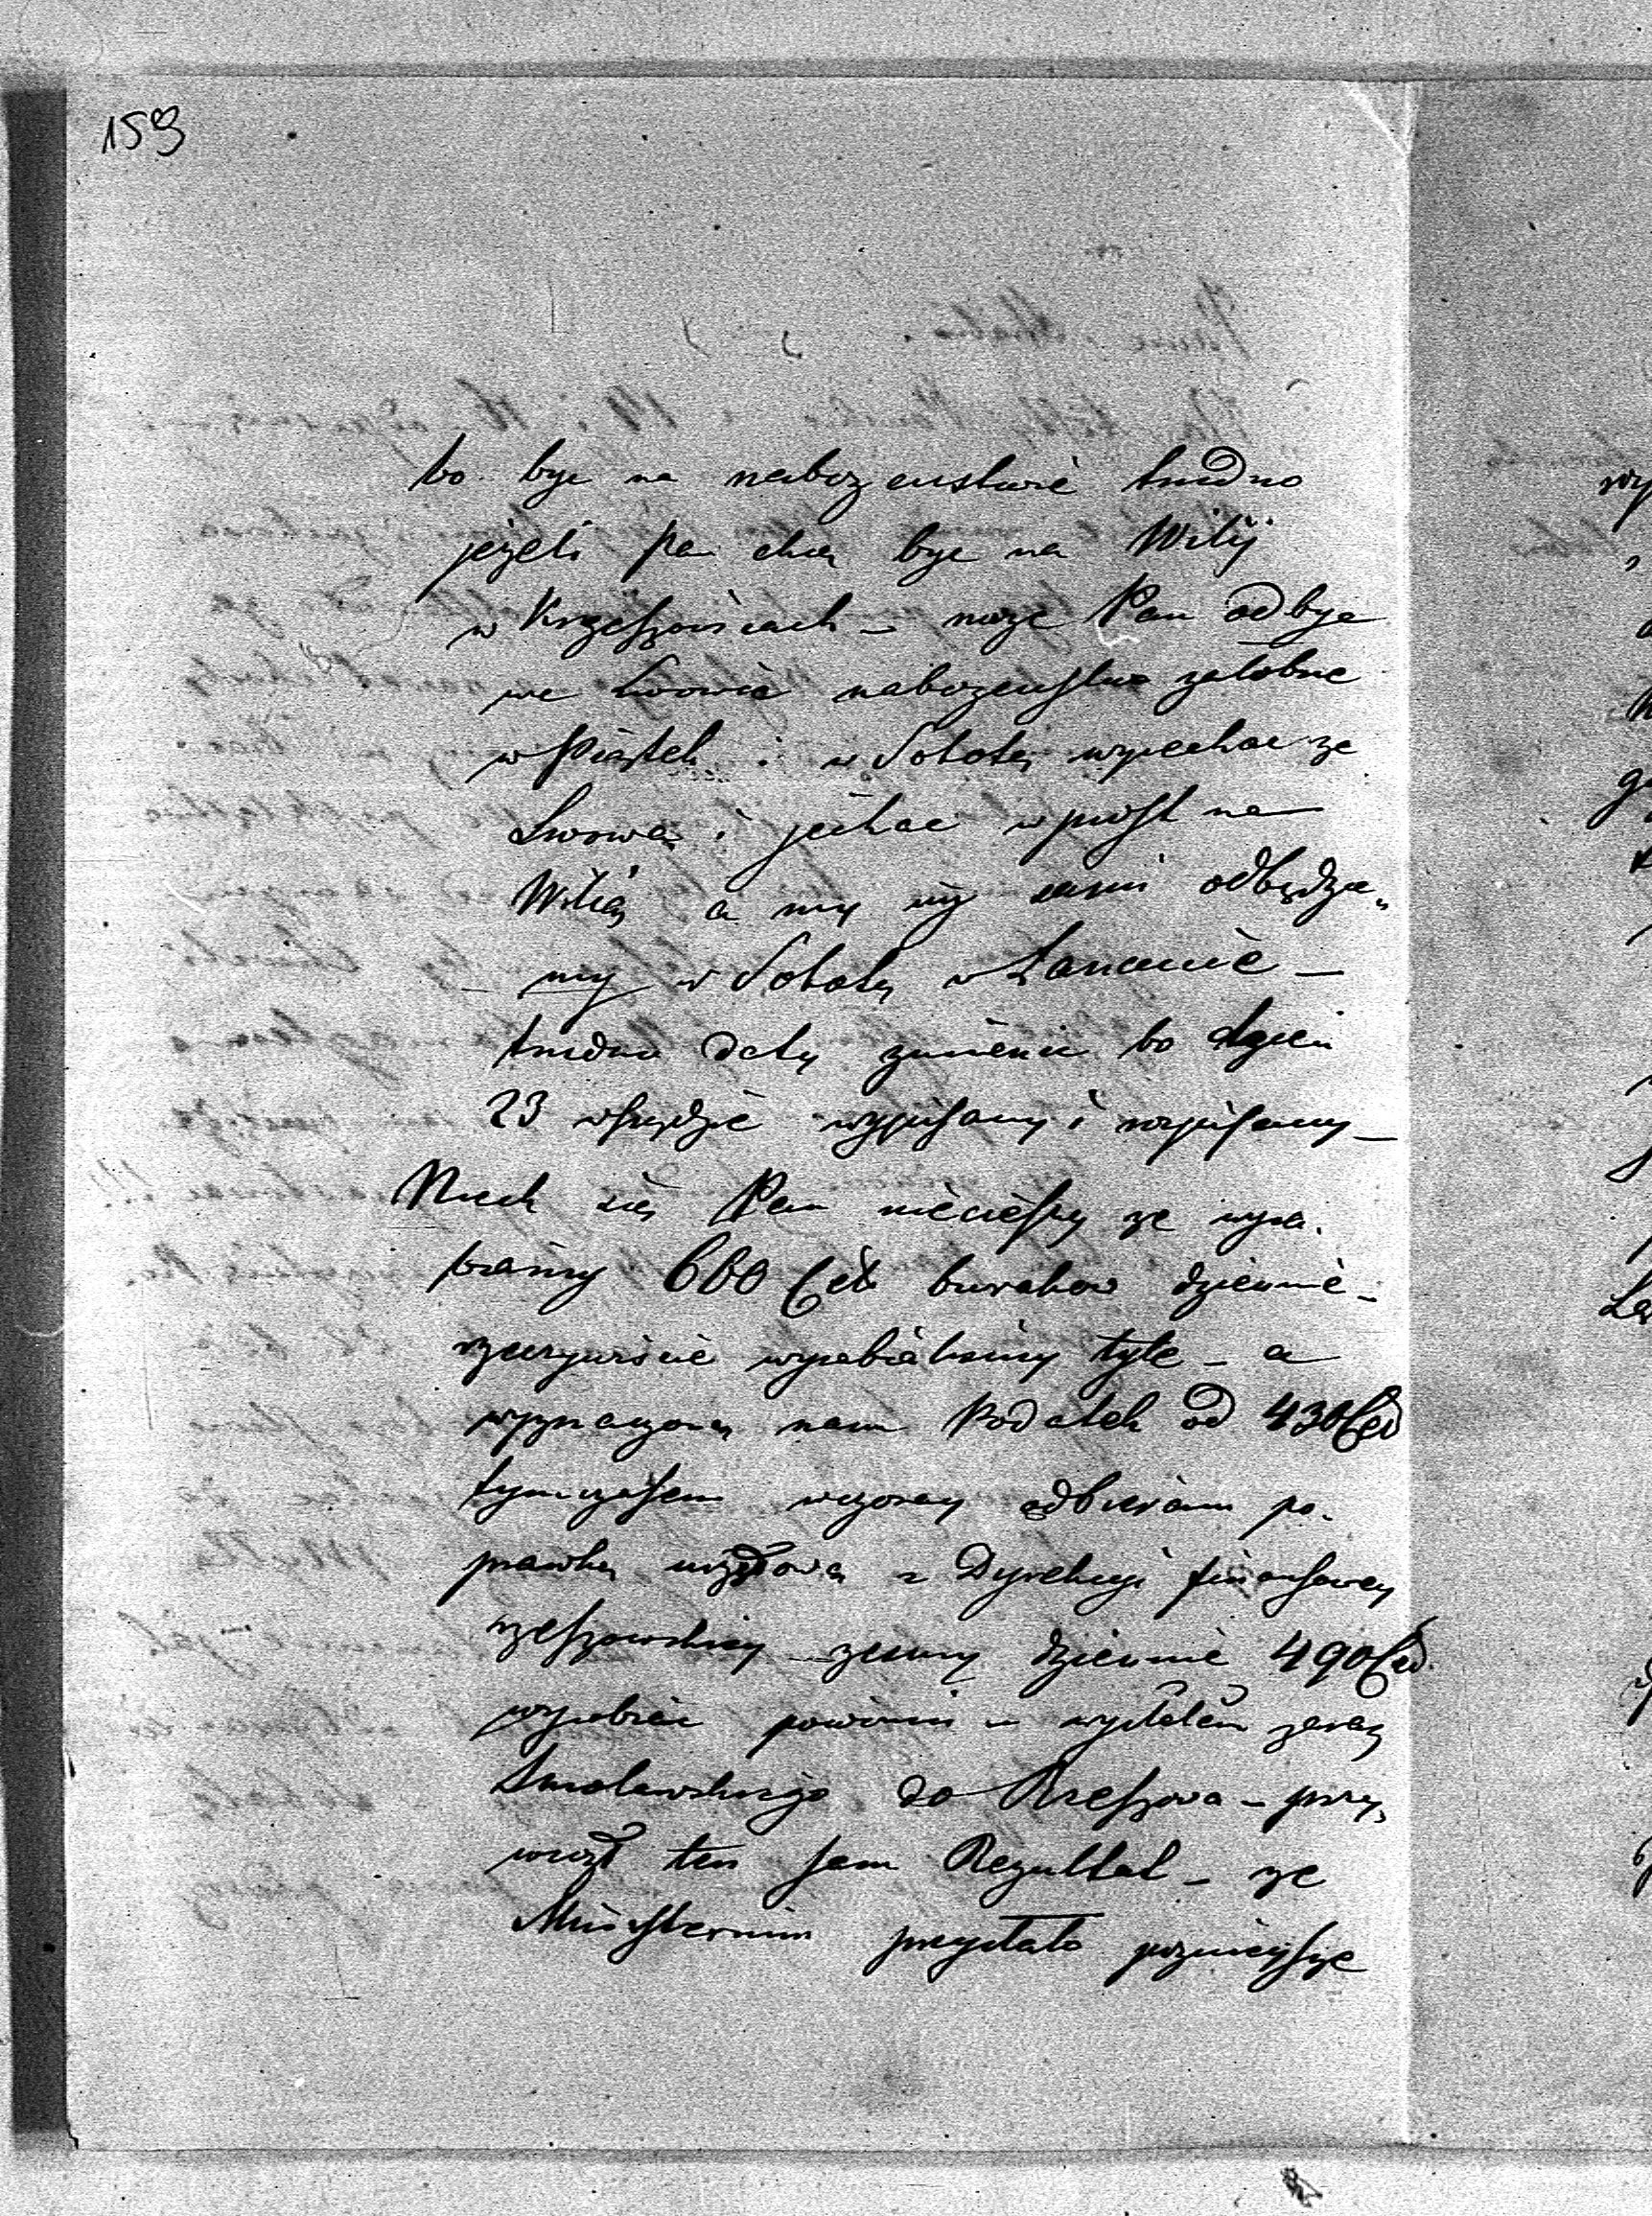 159
bo byc na nabozenstwie trudno
jezeli Pan chcę byc na Wilij
w Krzeszowicach – moze Pan odbyc
we Lwowie nabozenstwo załobne
w Piątek i w Sobotę wyiechac ze
Lwowa i jechac wprost na
Wilią a my odbędzie„
my w Sobotę w Łancucie –
trudno datę zmienic bo dzien
23 wszędzie wypisany i wypisany –
Niech się Pan nie cieszy ze wyra„
biamy 660 Cet burakow dziennie –
rzeczywiscie wyrabialismy tyle – a
wyznaczono nam Podatek od 430 Cet
tymczasem wczoray odbieram po„
prawkę urzędową z Dyrekcyi finansowey
rzeszowskiey zesmy dziennie 490 Cet
wyrabiac powinni – wysłałem zaraz
Smolawskiego do Rzeszowa – przy„
wiozł ten sam Rezultat – ze
Ministerium przysłało pozniejsze